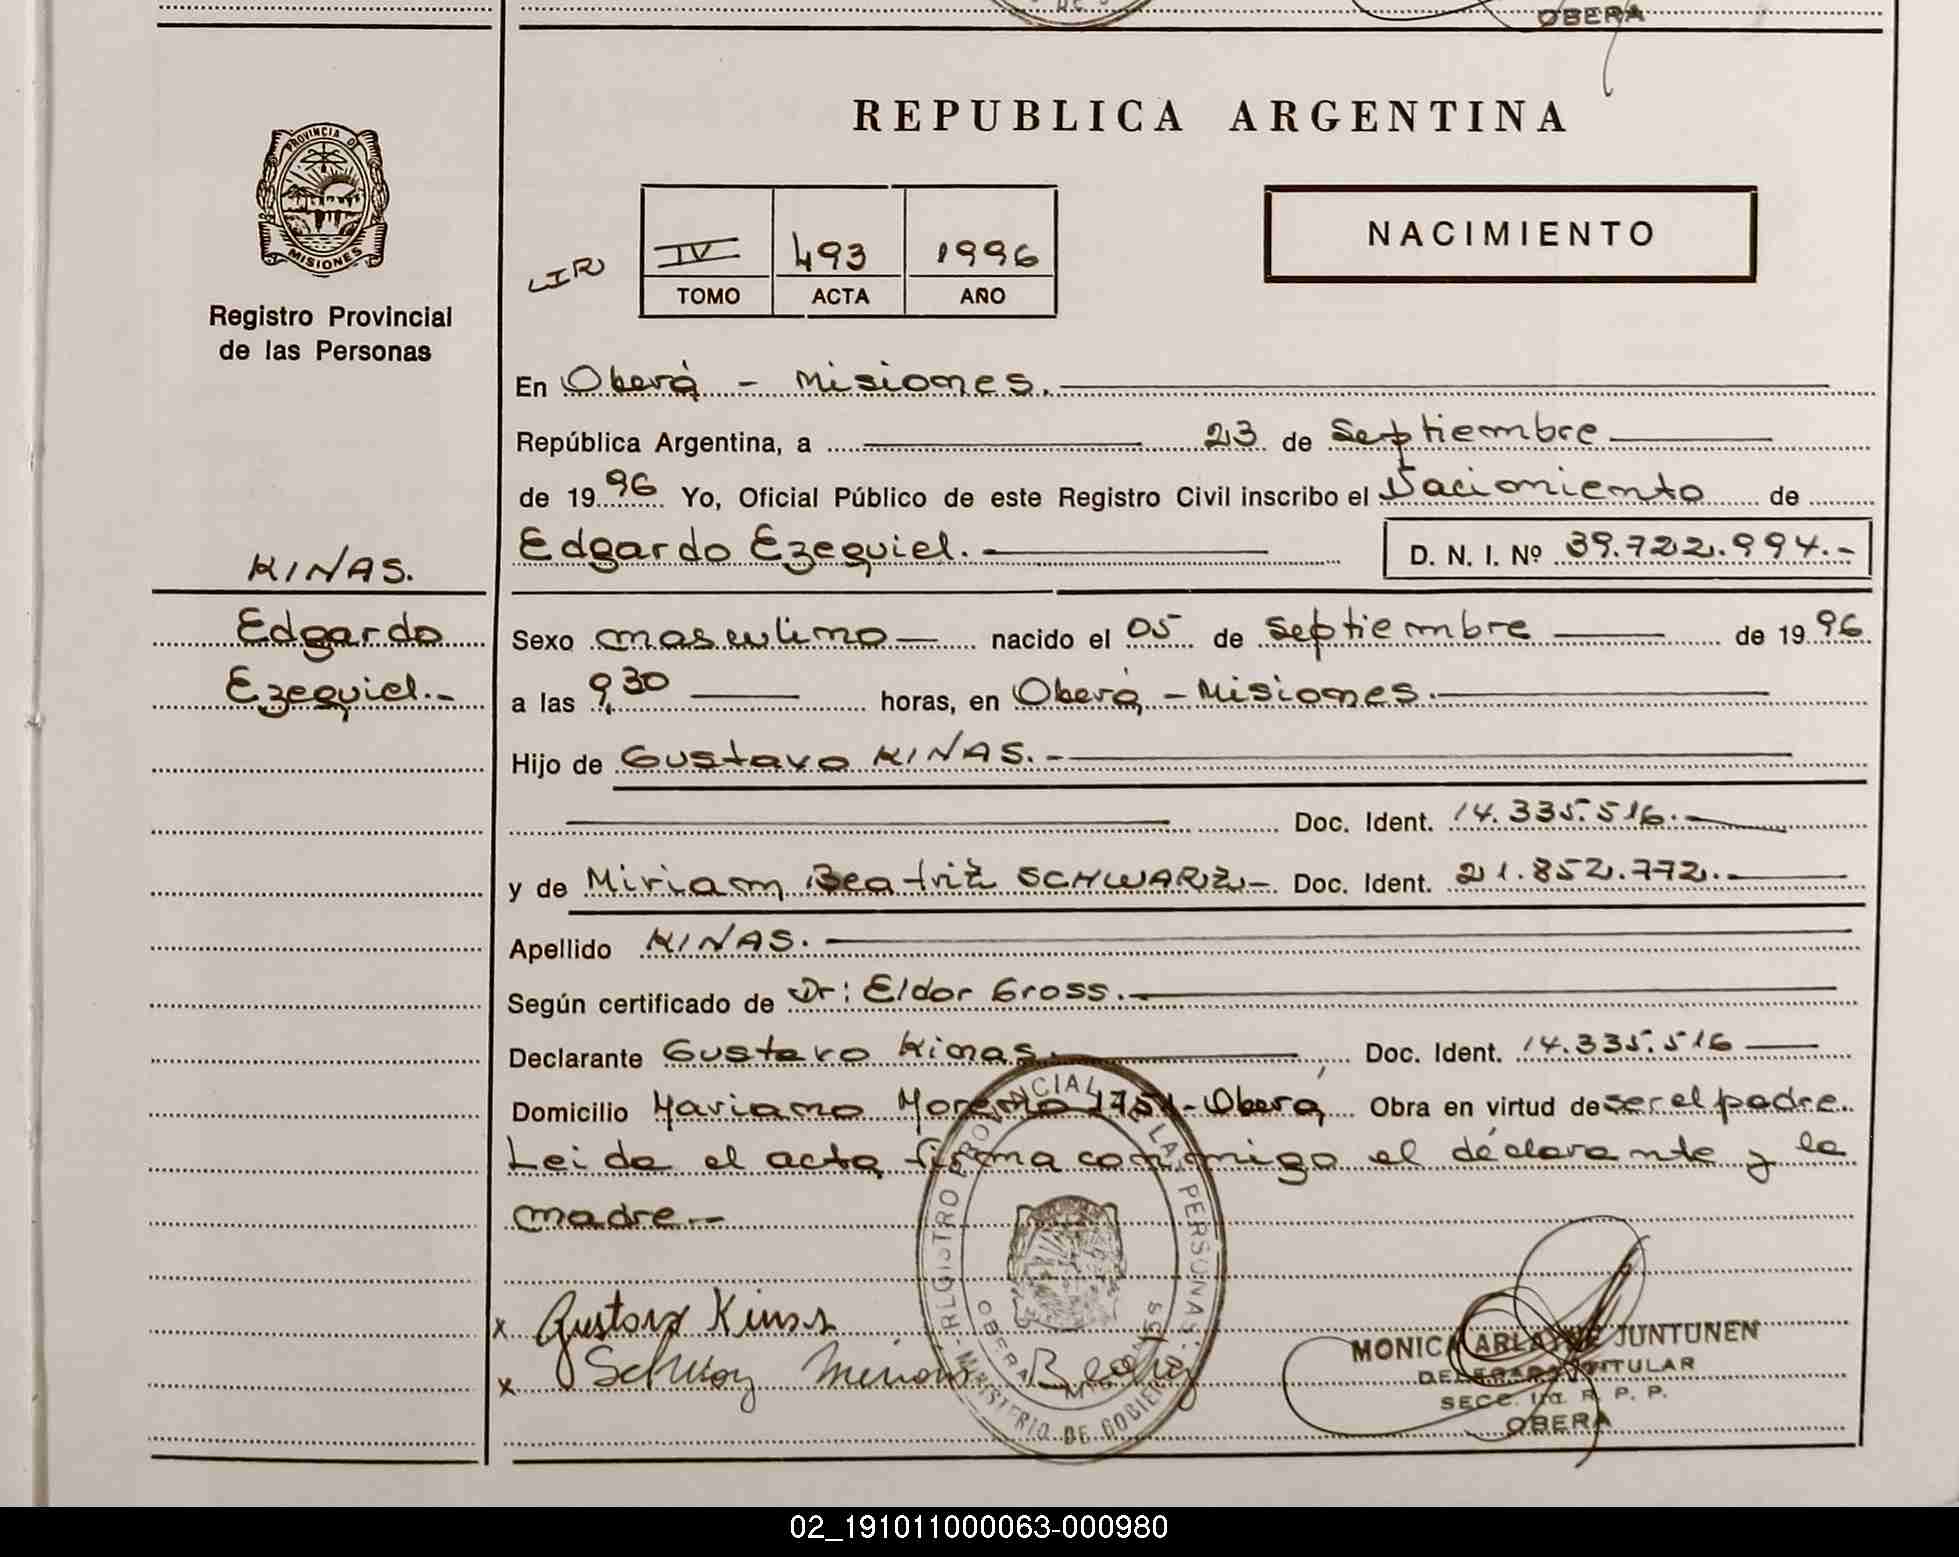 OBERA
REPUBLICA ARGENTINA
PROVINCIA DE
MISIONES
Registro Provincial
de las Personas
LIR
IV 493 1996
TOMO ACTA AÑO
NACIMIENTO
En Oberá - Misiones.
República Argentina, a 23 de Septiembre
de 1996 Yo, Oficial Público de este Registro Civil inscribo el Naciomiento de
KINAS.
Edgardo Ezequiel. D. N. I. Nº 39.722.994.-
Edgardo
Sexo masculino nacido el 05 de Septiembre de 1996
Ezequiel.-
a las 9,30 horas, en Oberá - Misiones.
Hijo de Gustavo KINAS.-
Doc. Ident. 14.335.516.
y de Miriam Beatriz SCHWARZ- Doc. Ident. 21.852.772.
Apellido KINAS.
Según certificado de Dr: Eldor Gross.
Declarante Gustavo Kinas Doc. Ident. 14.335.516
Domicilio Mariano Moreno 1751-Oberá Obra en virtud de ser el padre.
Leida el acta firma conmigo el declarante y la
madre.-
x Gustavo Kinas
x Miriam
REGISTRO PROVINCIAL DE LAS PERSONAS - MINISTERIO DE GOBIERNO
OBERA MISIONES
MONICA ARLAYNE JUNTUNEN
DELEGADA TITULAR
SECC. 1ra. R. P. P.
OBERA
02_191011000063-000980